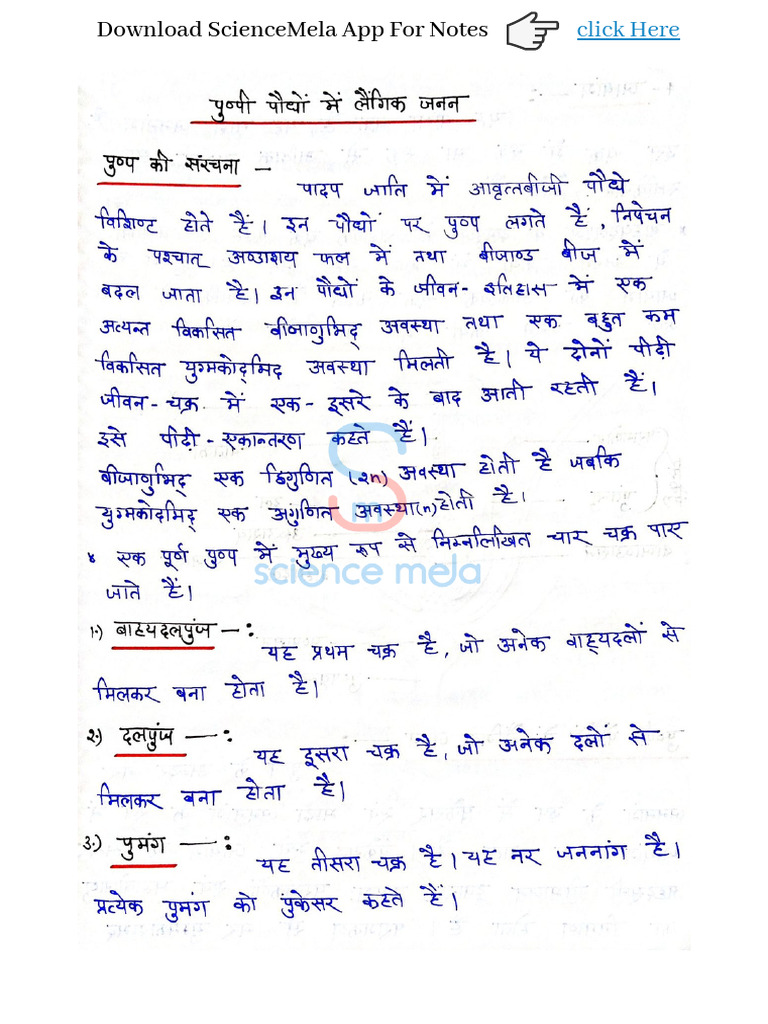 Download ScienceMela App For Notes click Here
पुष्पी पौधों में लैंगिक जनन
पुष्प की संरचना –
पादप जाति में आवृत्तबीजी पौधे
विशिष्ट होते हैं। इन पौधों पर पुष्प लगते हैं, निषेचन
के पश्चात् अण्डाशय फल में तथा बीजाण्ड बीज में
बदल जाता है। इन पौधों के जीवन-इतिहास में एक
अत्यन्त विकसित बीजाणुभिद् अवस्था तथा एक बहुत कम
विकसित युग्मकोद्भिद अवस्था मिलती है। ये दोनों पीढ़ी
जीवन-चक्र में एक-दूसरे के बाद आती रहती हैं।
इसे पीढी-एकान्तरण कहते हैं।
बीजाणुभिद् एक द्विगुणित (2n) अवस्था होती है जबकि
युग्मकोदभिद् एक अगुणित अवस्था(n) होती है।
* एक पूर्ण पुष्प में मुख्य रूप से निम्नलिखित चार चक्र पाए
जाते हैं।
science mela
1.) बाह्यदलपुंज –:
यह प्रथम चक्र है, जो अनेक बाह्यदलों से
मिलकर बना होता है।
2.) दलपुंज –:
यह दूसरा चक्र है, जो अनेक दलों से
मिलकर बना होता है।
3.) पुमंग –:
यह तीसरा चक्र है। यह नर जननांग है।
प्रत्येक पुमंग को पुंकेसर कहते हैं।